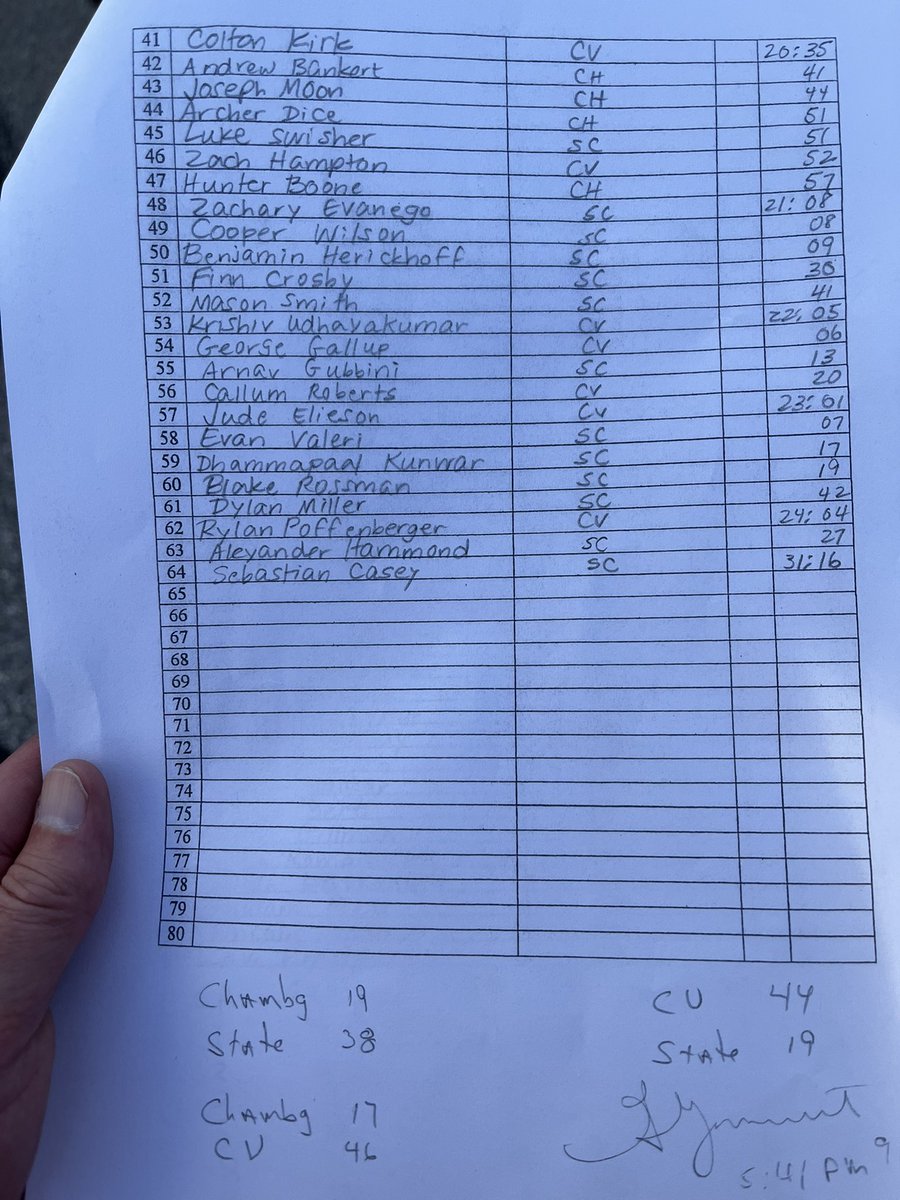 41 Colton Kirk CV 20:35
42 Andrew Bankert CH 41
43 Joseph Moon CH 44
44 Archer Dice CH 51
45 Luke Swisher SC 51
46 Zach Hampton CV 52
47 Hunter Boone CH 57
48 Zachary Evanego SC 21:08
49 Cooper Wilson SC 08
50 Benjamin Herickhoff SC 09
51 Finn Crosby SC 30
52 Mason Smith SC 41
53 Krishiv Udhayakumar CV 22:05
54 George Gallup CV 06
55 Arnav Gubbini SC 13
56 Callum Roberts CV 20
57 Jude Elieson CV 23:01
58 Evan Valeri SC 07
59 Dhammapaal Kunwar SC 17
60 Blake Rossman SC 19
61 Dylan Miller SC 42
62 Rylan Poffenberger CV 24:04
63 Alexander Hammond SC 27
64 Sebastian Casey SC 31:16
65
66
67
68
69
70
71
72
73
74
75
76
77
78
79
80
Chambg 19 CV 44
State 38 State 19
Chambg 17
CV 46
5:41 pm